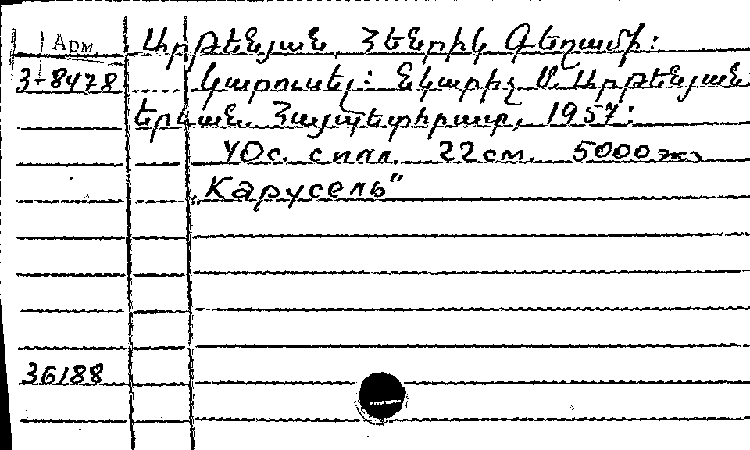 Арм. Արթենյան, Հենրիկ Գեղամի:
3-8478 Կարուսել: Նկարիչ Մ. Արթենյան
Երևան. Հայպետհրատ, 1957:
40с. с илл. 22см. 5000экз
„Карусель"
36188